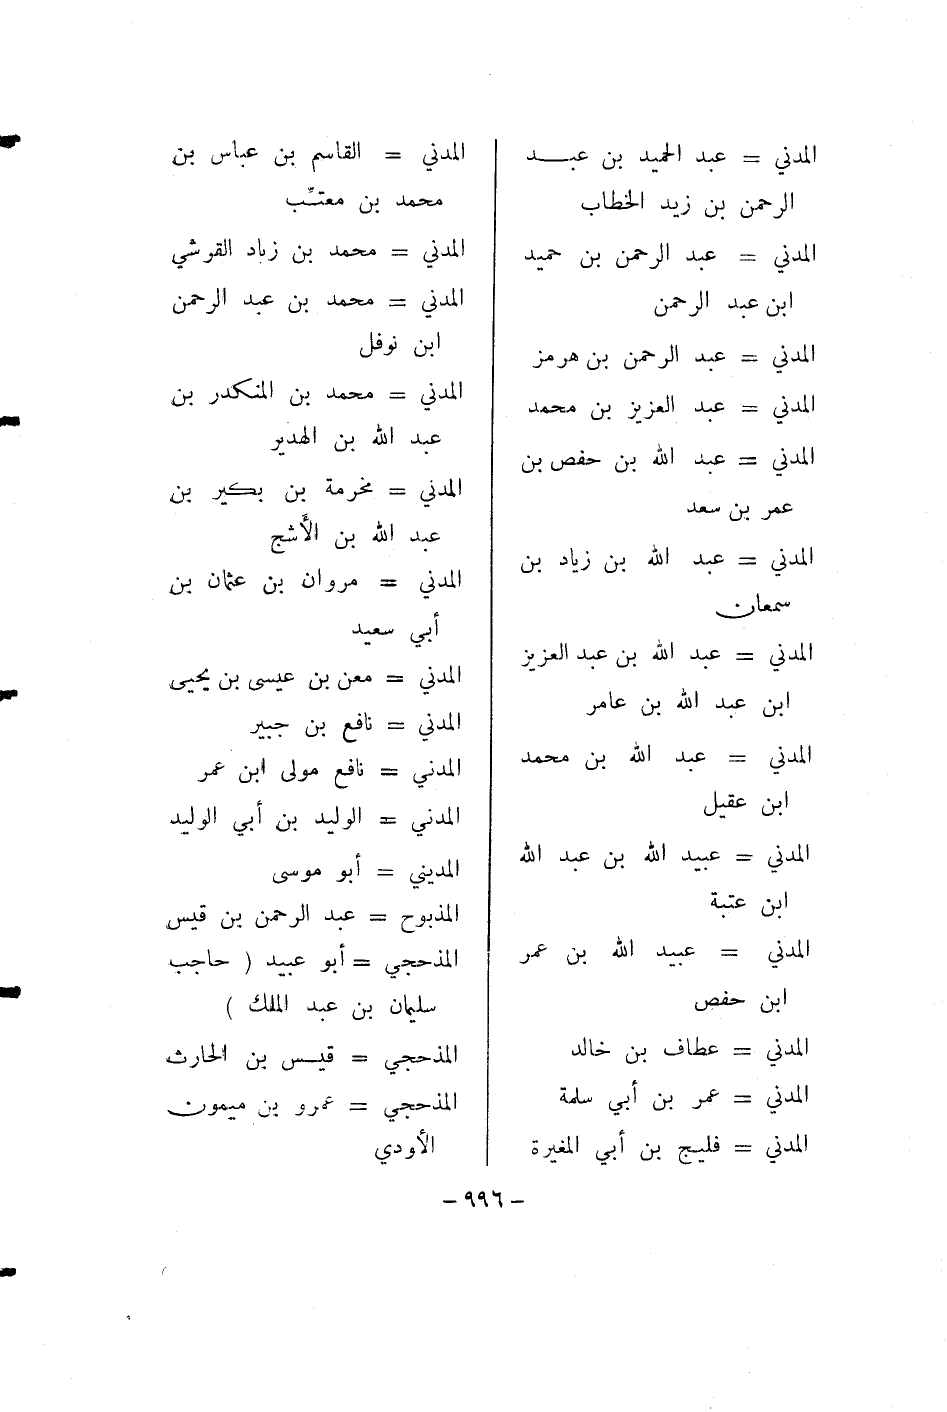 المدني = عبد الحميد بن عبد
الرحمن بن زيد الخطاب
المدني = عبد الرحمن بن حميد
ابن عبد الرحمن
المدني = عبد الرحمن بن هرمز
المدني = عبد العزيز بن محمد
المدني = عبد الله بن حفص بن
عمر بن سعد
المدني = عبد الله بن زياد بن
سمعان
المدني = عبد الله بن عبد العزيز
ابن عبد الله بن عامر
المدني = عبد الله بن محمد
ابن عقيل
المدني = عبيد الله بن عبد الله
ابن عتبة
المدني = عبيد الله بن عمر
ابن حفص
المدني = عطاف بن خالد
المدني = عمر بن أبي سلمة
المدني = فليح بن أبي المغيرة
المدني = القاسم بن عباس بن
محمد بن معتّب
المدني = محمد بن زياد القرشي
المدني = محمد بن عبد الرحمن
ابن نوفل
المدني = محمد بن المنكدر بن
عبد الله بن الهدير
المدني = مخرمة بن بكير بن
عبد الله بن الأشج
المدني = مروان بن عثمان بن
أبي سعيد
المدني = معن بن عيسى بن يحيى
المدني = نافع بن جبير
المدني = نافع مولى ابن عمر
المدني = الوليد بن أبي الوليد
المديني = أبو موسى
المذبوح = عبد الرحمن بن قيس
المذحجي = أبو عبيد ( حاجب
سليمان بن عبد الملك )
المذحجي = قيس بن الحارث
المذحجي = عمرو بن ميمون
الأودي
- ٩٩٦ -